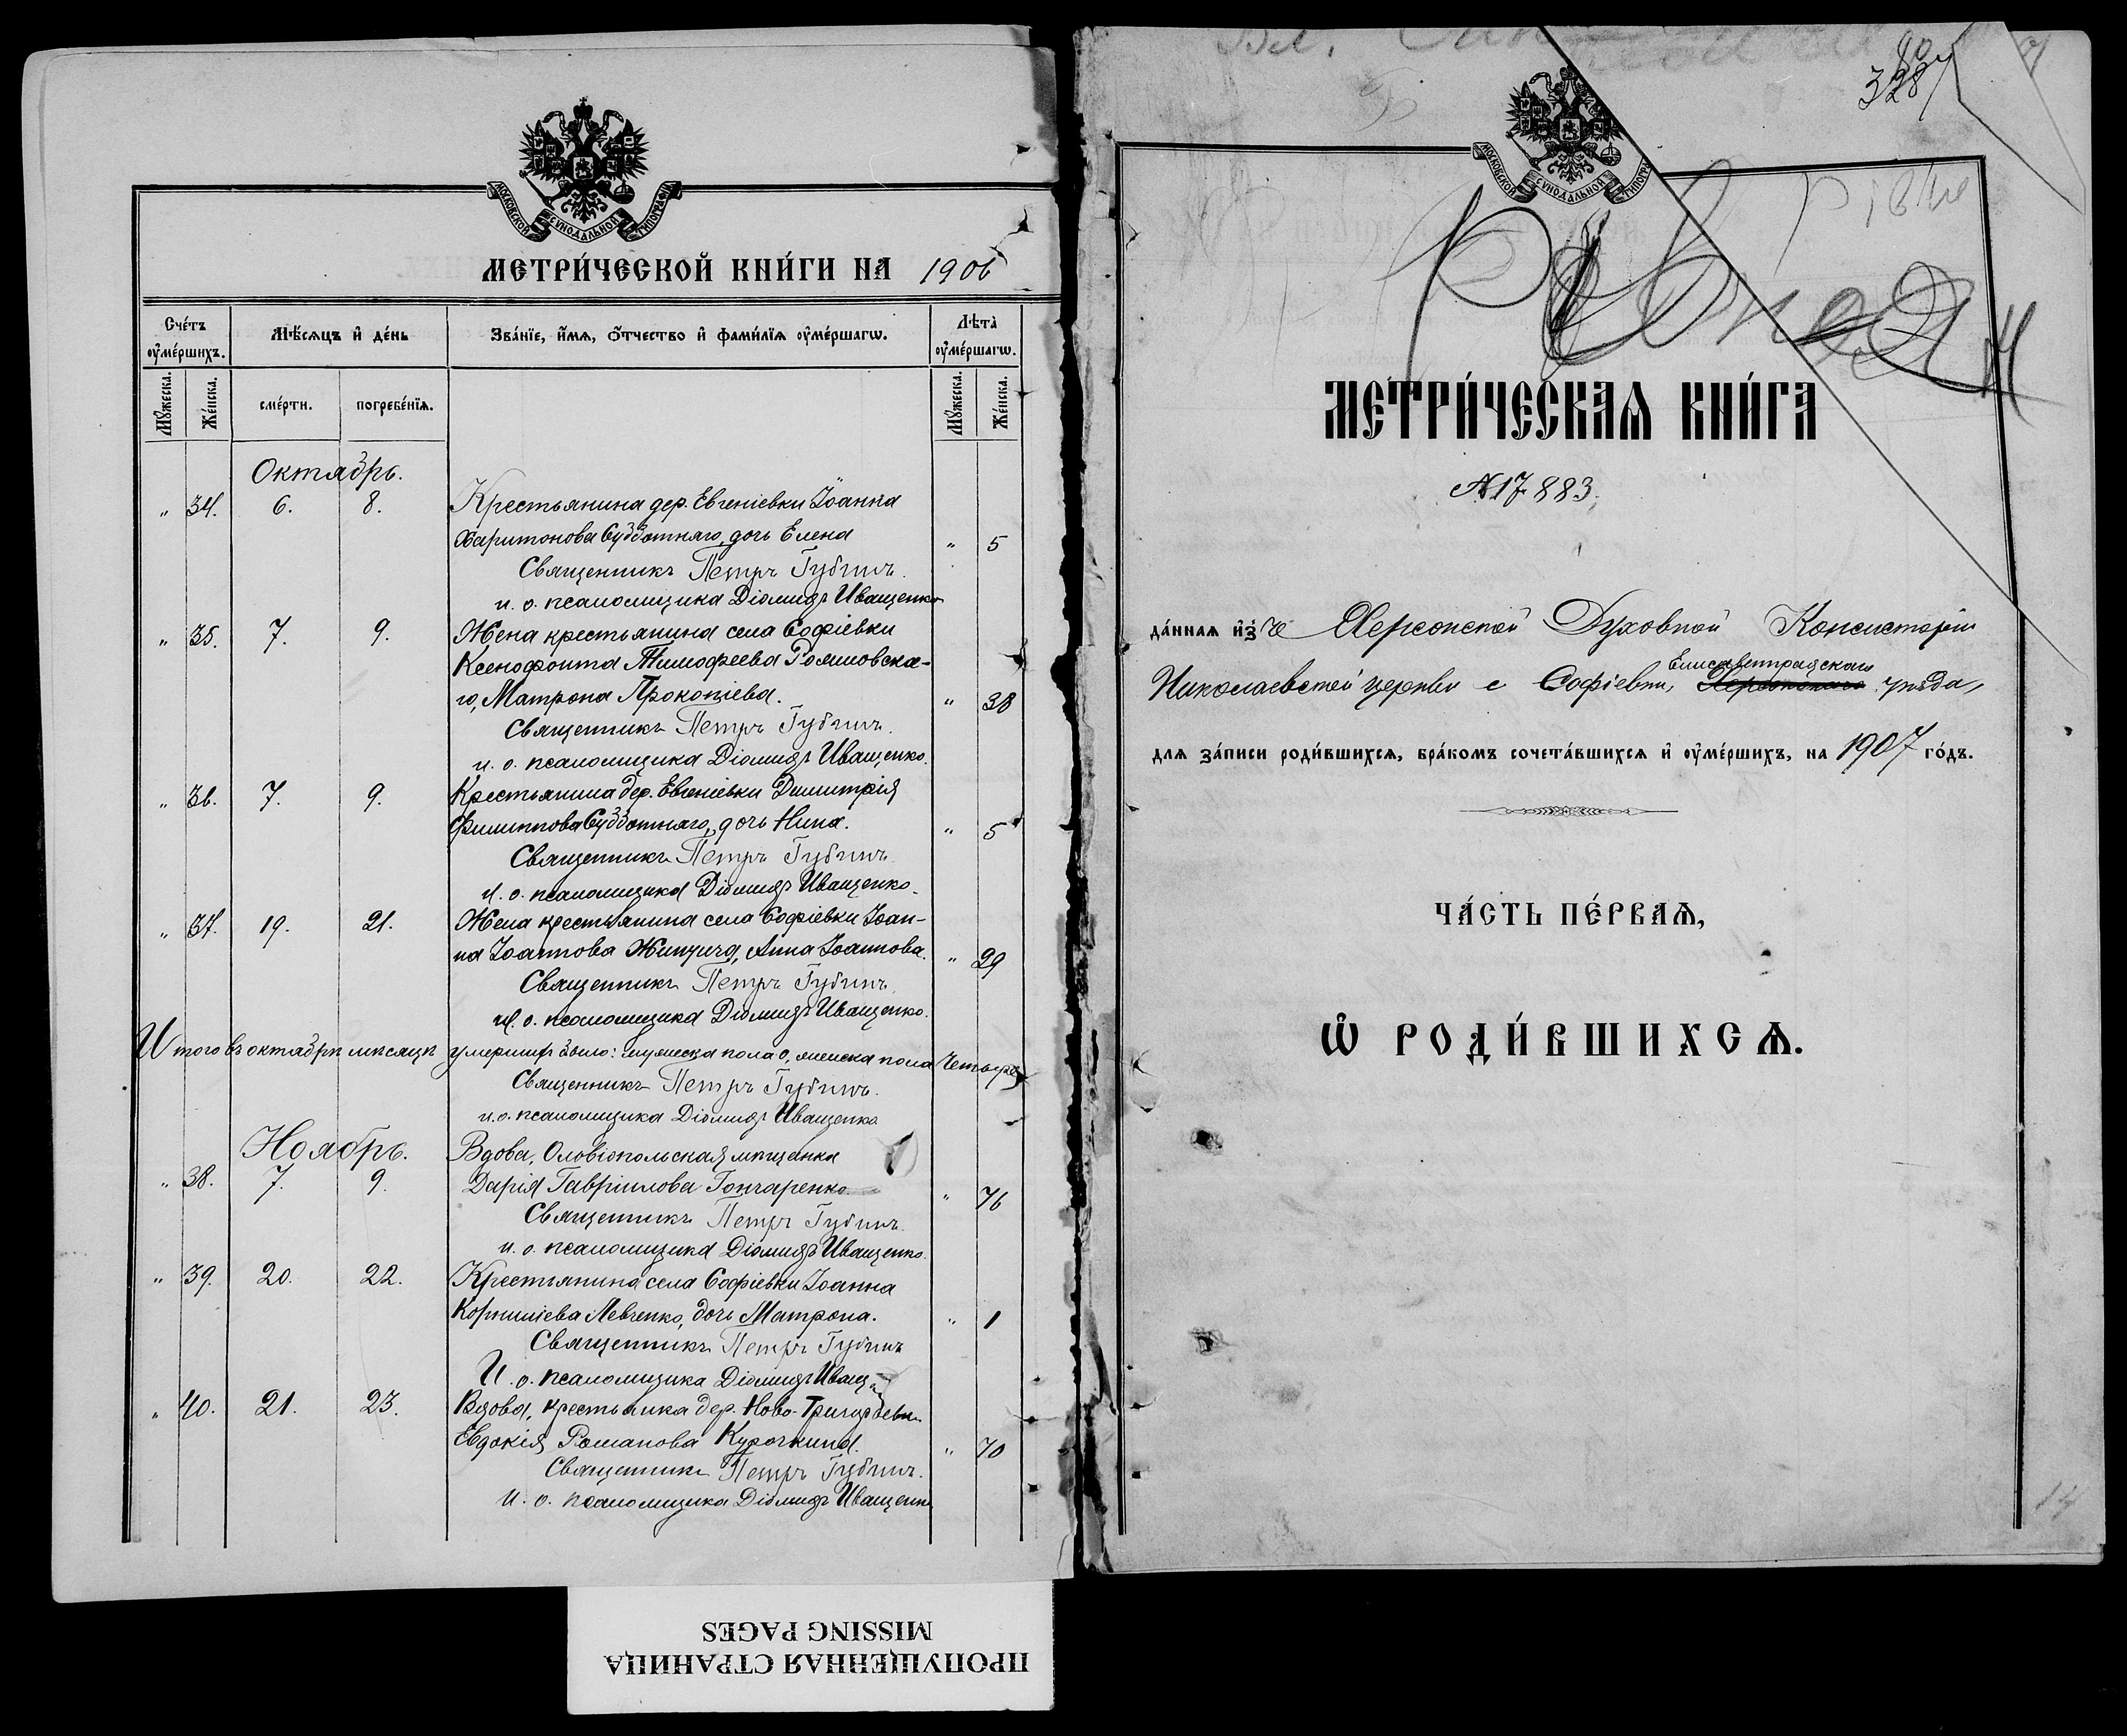 МОСКОВСКОЙ СУНОДАЛЬНОЙ ТИПОГРАФІИ
МЕТРИ́ЧЕСКОЙ КНИ́ГИ НА 1906
Сче́тъ ᲂу҆ме́ршихъ.
Мѣ́сяцъ и҆ де́нь
Зва́нїе, и҆́мѧ, ѻ҆́тчество и҆ фами́лїѧ ᲂу҆ме́ршагѡ.
Лѣта̀ ᲂу҆ме́ршагѡ.
Мꙋ́жеска.
Же́нска.
сме́рти.
погребе́нїѧ.
Мꙋ́жеска.
Же́нска.
Октябрь.
" 34. 6. 8. Крестьянина дер. Евгеніевки Іоанна
Харитонова Субботняго, дочь Елена " 5
Священникъ Петръ Губинъ.
и. о. псаломщика Діомидъ Иващенко
" 35. 7. 9. Жена крестьянина села Софіевки
Ксенофонта Тимофеева Роямовска-
го, Матрона Прокопіева. " 38
Священникъ Петръ Губинъ.
и. о. псаломщика Діомидъ Иващенко.
" 36. 7. 9. Крестьянина дер. Евгеніевки Димитрія
Филиппова Субботняго, дочь Нина. " 5
Священникъ Петръ Губинъ
и. о. псаломщика Діомидъ Иващенко.
" 37. 19. 21. Жена крестьянина села Софіевки Іоан-
на Іоаннова Анна Іоаннова. " 29
Священникъ Петръ Губинъ.
и. о. псаломщика Діомидъ Иващенко.
Итого въ октябрѣ мѣсяцѣ умершихъ было: мужеска пола 0, женска пола четыре
Священникъ Петръ Губинъ.
и. о. псаломщика Діомидъ Иващенко
Ноябрь. Вдова, Оловіопольская мѣщанка
" 38. 7. 9. Дарія Гавріилова Гончаренко " 76
Священникъ Петръ Губинъ.
и. о. псаломщика Діомидъ Иващенко.
" 39. 20. 22. Крестьянина села Софіевки Іоанна
Корниліева Левченко, дочь Матрона. " 1
Священникъ Петръ Губинъ
И. о. псаломщика Діомидъ Иващ
" 40. 21. 23. Вдова, крестьянка дер. Ново-Григорьевки
Евдокія Романова Курочкина. " 70
Священникъ Петръ Губинъ.
и. о. псаломщика Діомидъ Иващенко
ПРОПУЩЕННАЯ СТРАНИЦА
MISSING PAGES
328
МОСКОВСКОЙ СУНОДАЛЬНОЙ ТИПОГРА
МЕТРИ́ЧЕСКАѦ КНИ́ГА
№ 17883.
да́ннаѧ и҆зъ Херсонской Духовной Консисторіи
Елисаветградскаго
Николаевской церкви с Софіевки, Херсонскаго уѣзда,
для за́писи роди́вшихсѧ, бра́комъ сочета́вшихсѧ и҆ ᲂу҆ме́ршихъ, на 1907 го́дъ.
ЧА́СТЬ ПЕ́РВАѦ,
Ѡ҆ РОДИ́ВШИХСѦ.
14